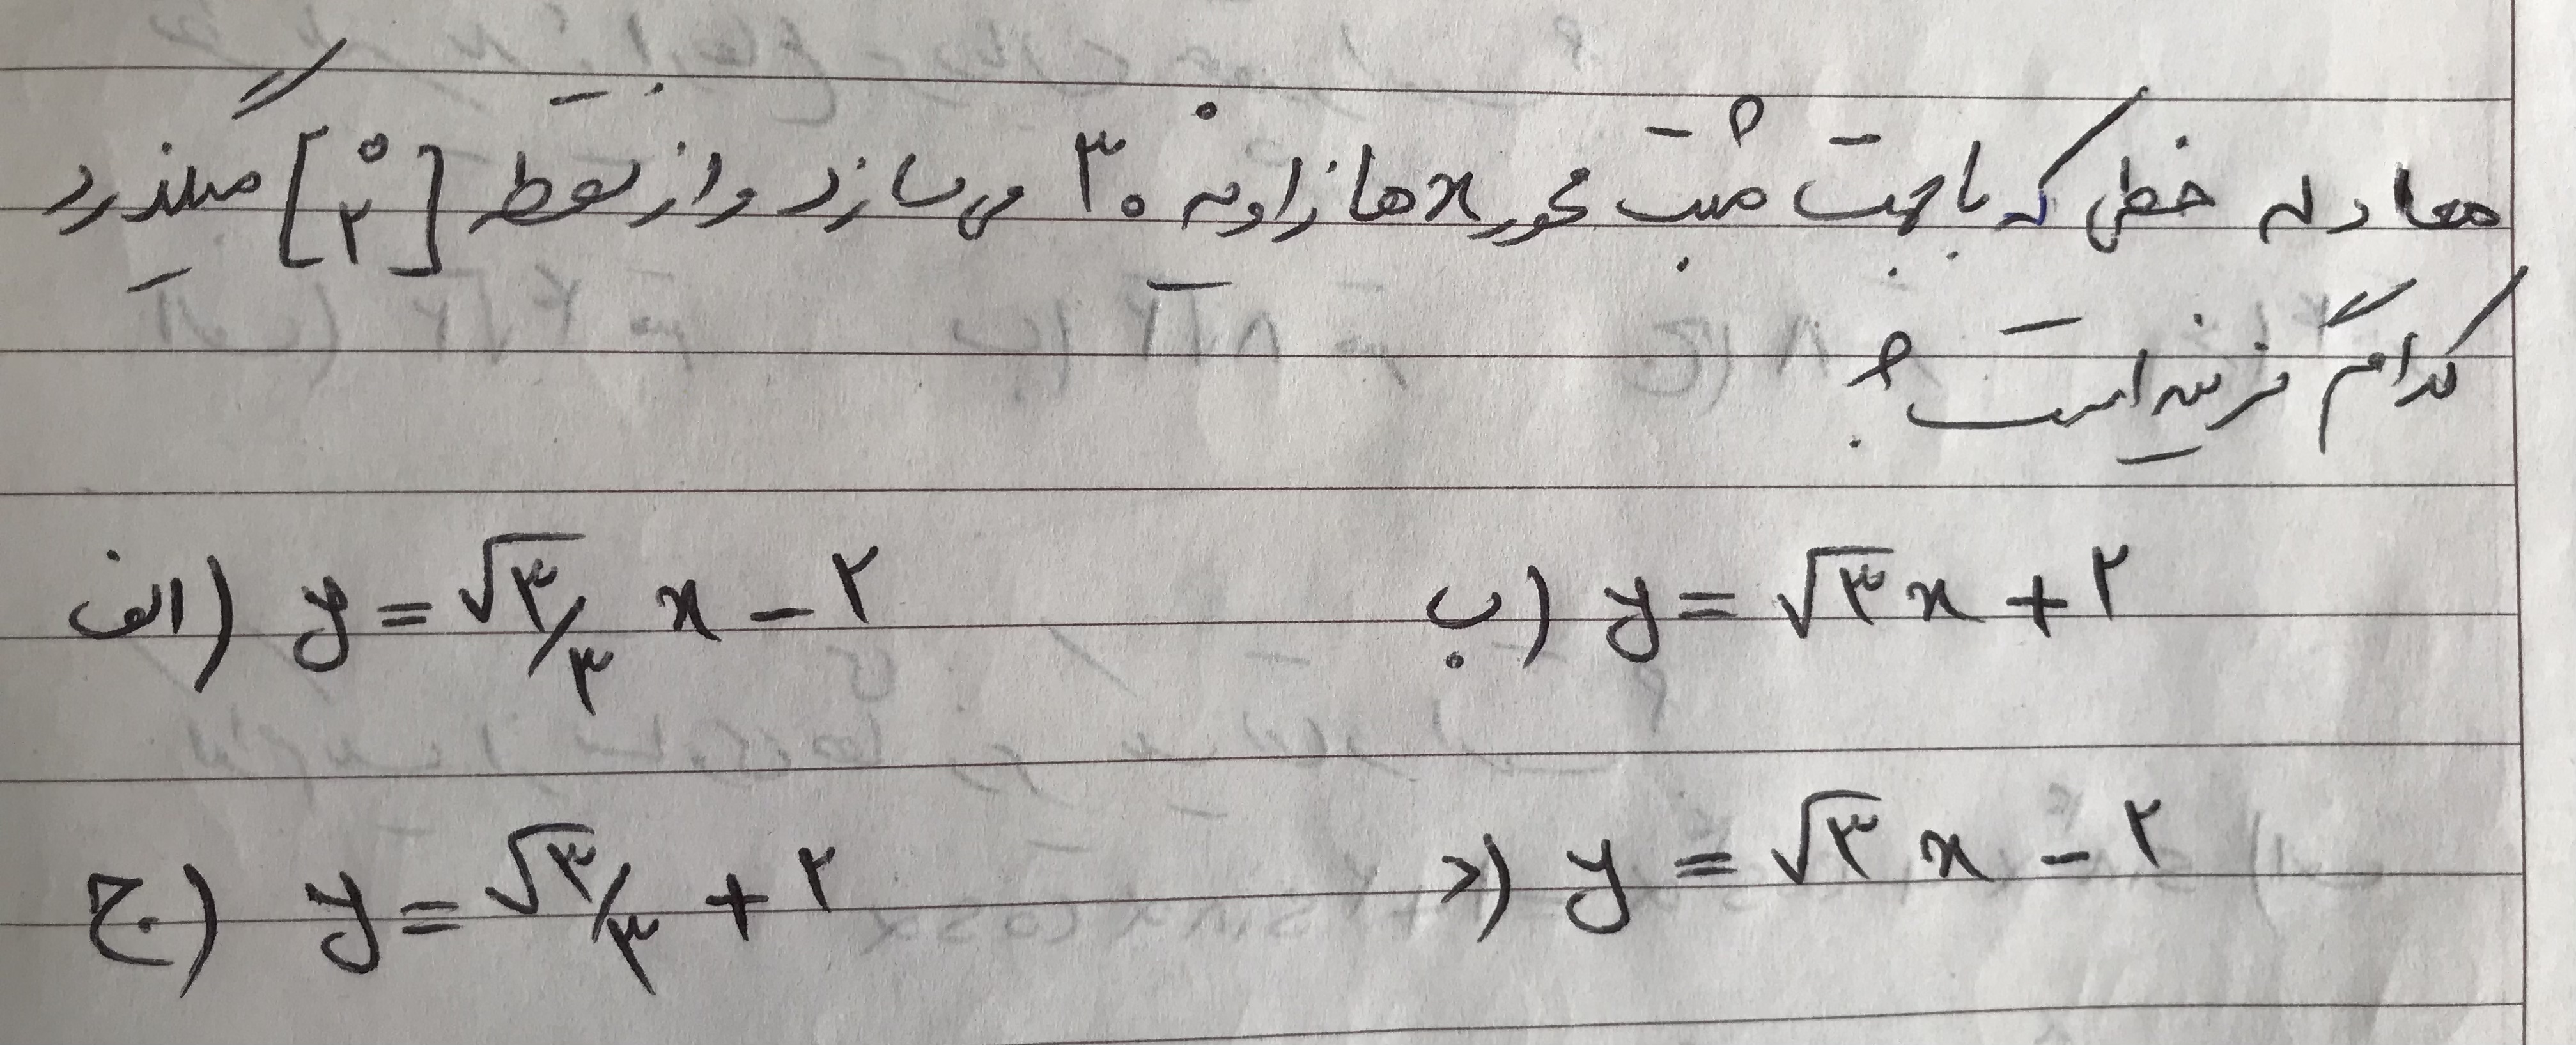 معادله خطی که با جهت مثبت محور x ها زاویه ۳۰° می سازد و از نقطه [۰ ۲] میگذرد
کدام گزینه است؟
الف) y = √۳/۳ x - ۲
ب) y = √۳ x + ۲
ج) y = √۳/۳ + ۲
د) y = √۳ x - ۲